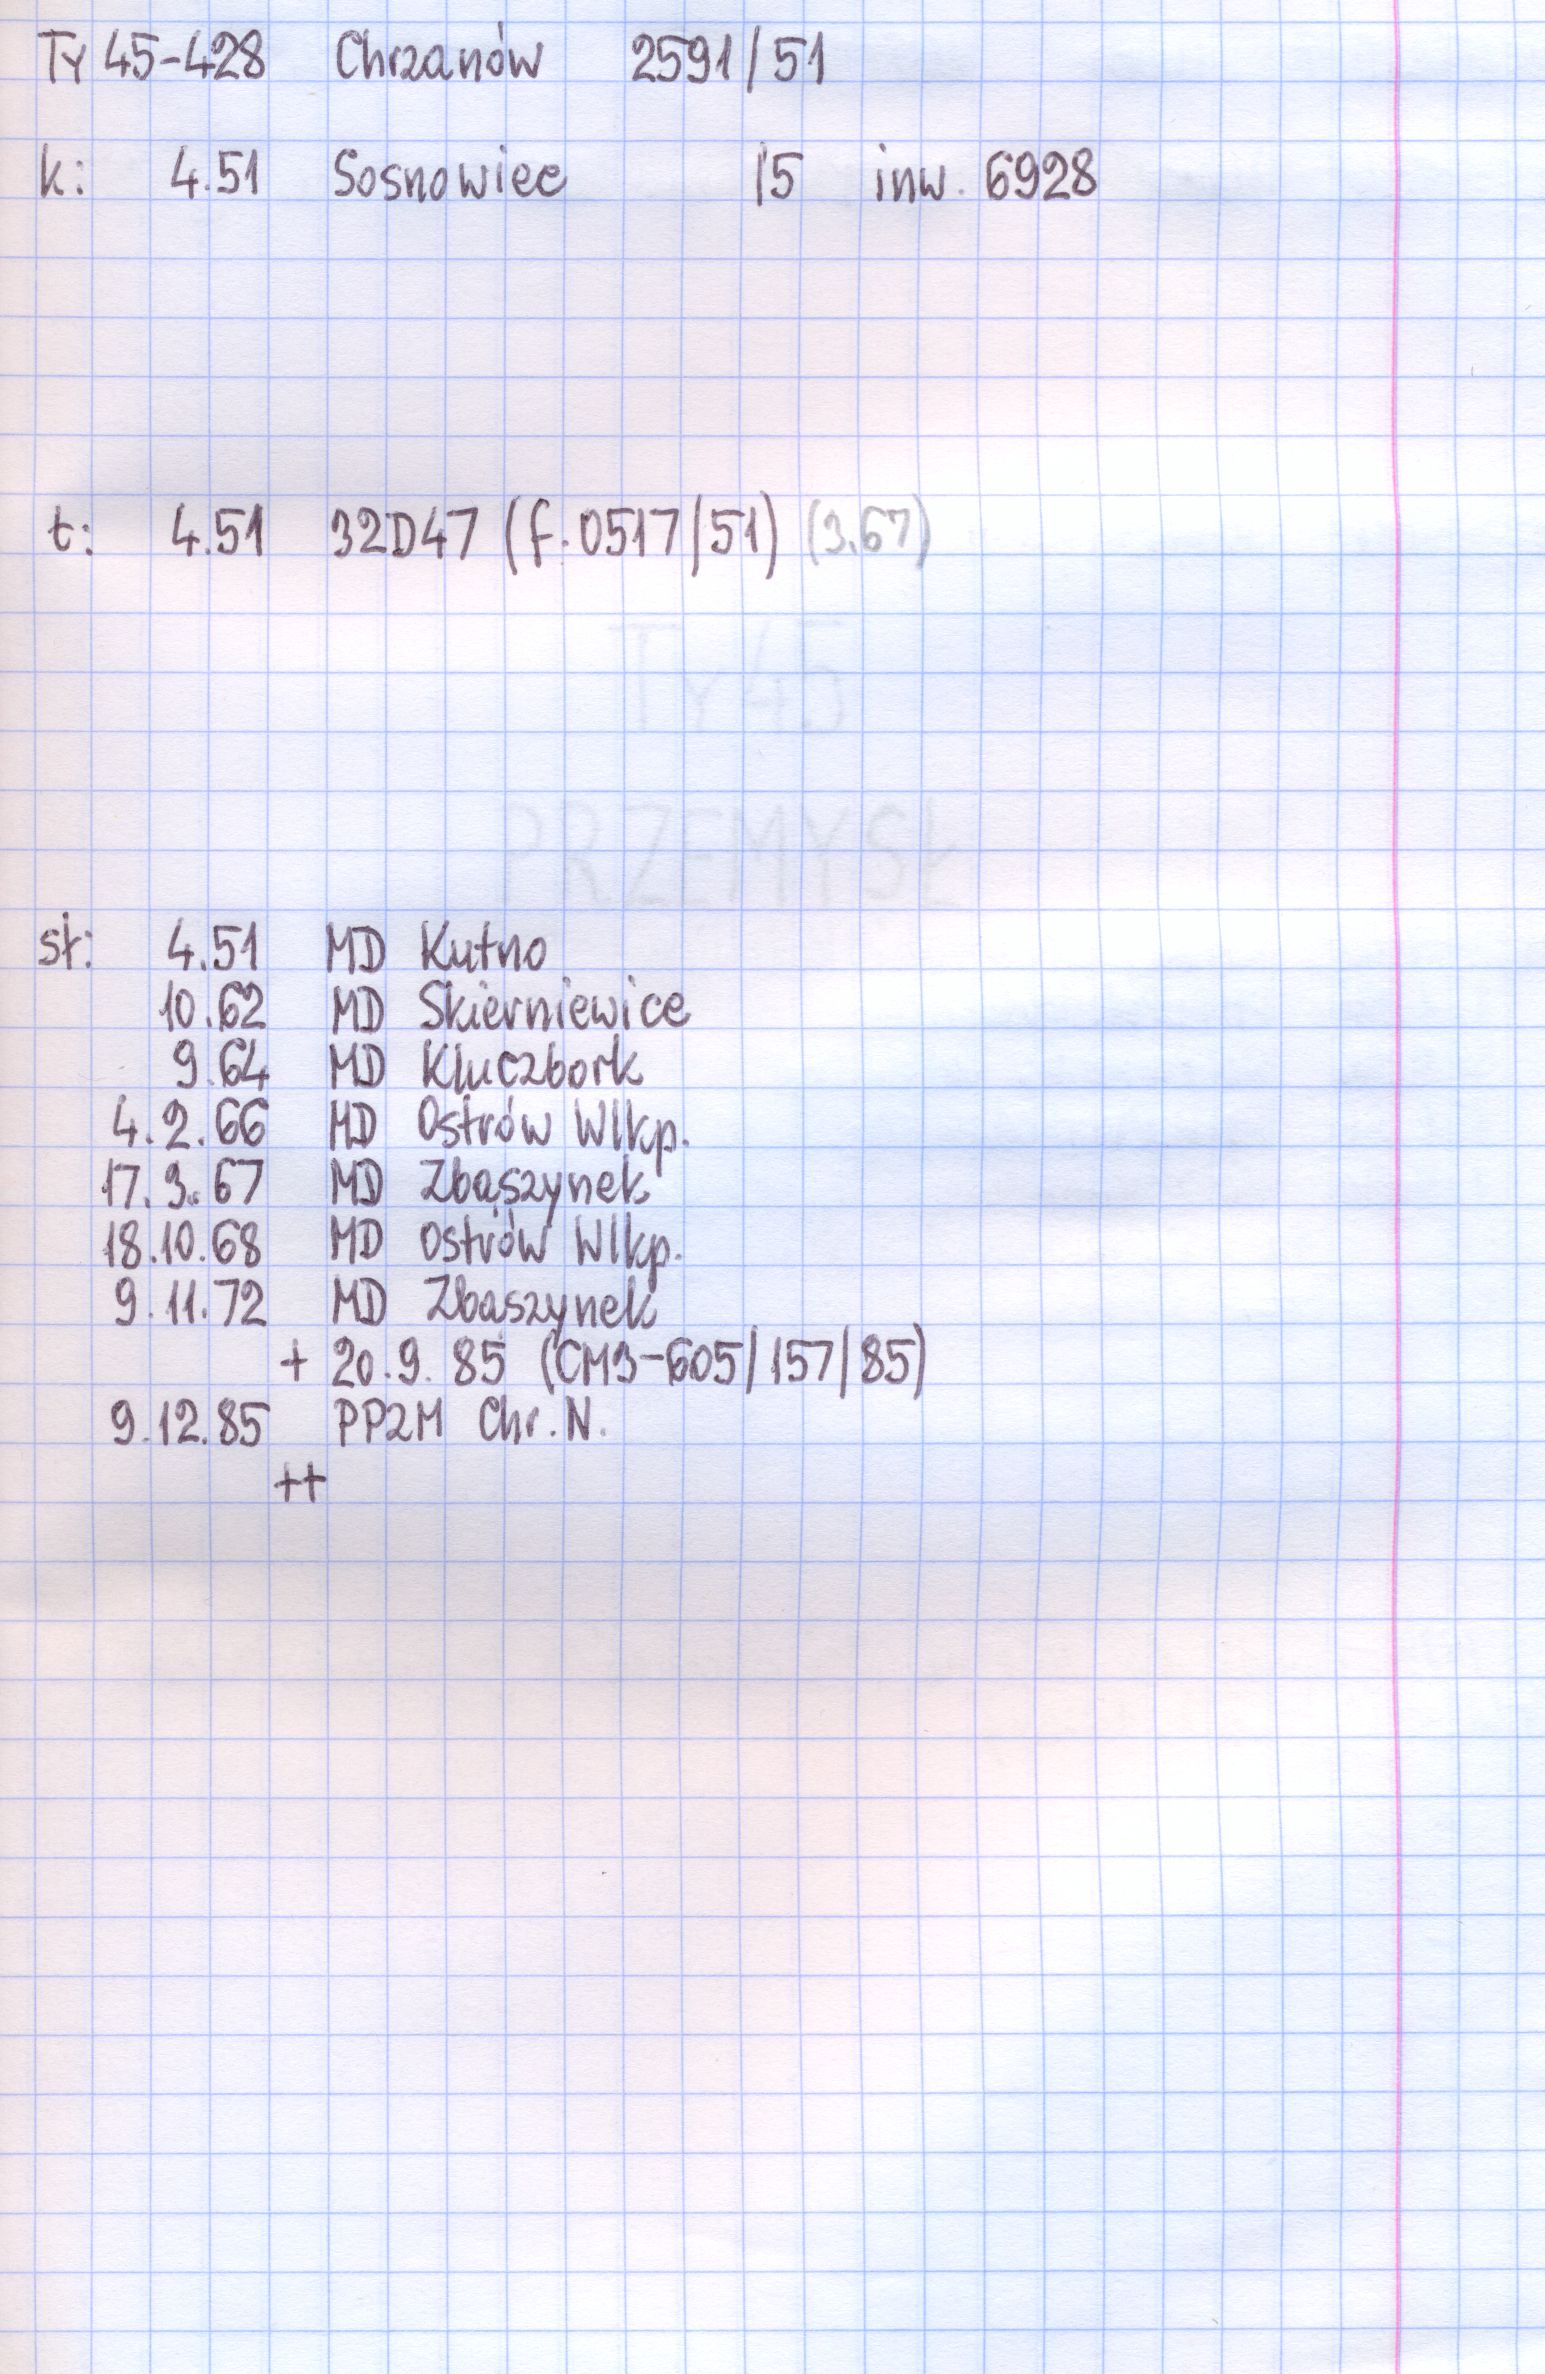 Ty 45-428 Chrzanów 2591/51
k: 4.51 Sosnowiec /5 inw. 6928
t: 4.51 32D47 (f.0517/51) (3.67)
Ty45
PRZEMYSŁ
st: 4.51 MD Kutno
10.62 MD Skierniewice
9.64 MD Kluczbork
4.2.66 MD Ostrów Wlkp.
17.3.67 MD Zbąszynek
18.10.68 MD Ostrów Wlkp.
9.11.72 MD Zbąszynek
+ 20.9.85 (CM3-605/157/85)
9.12.85 PPZM Chr.N.
++